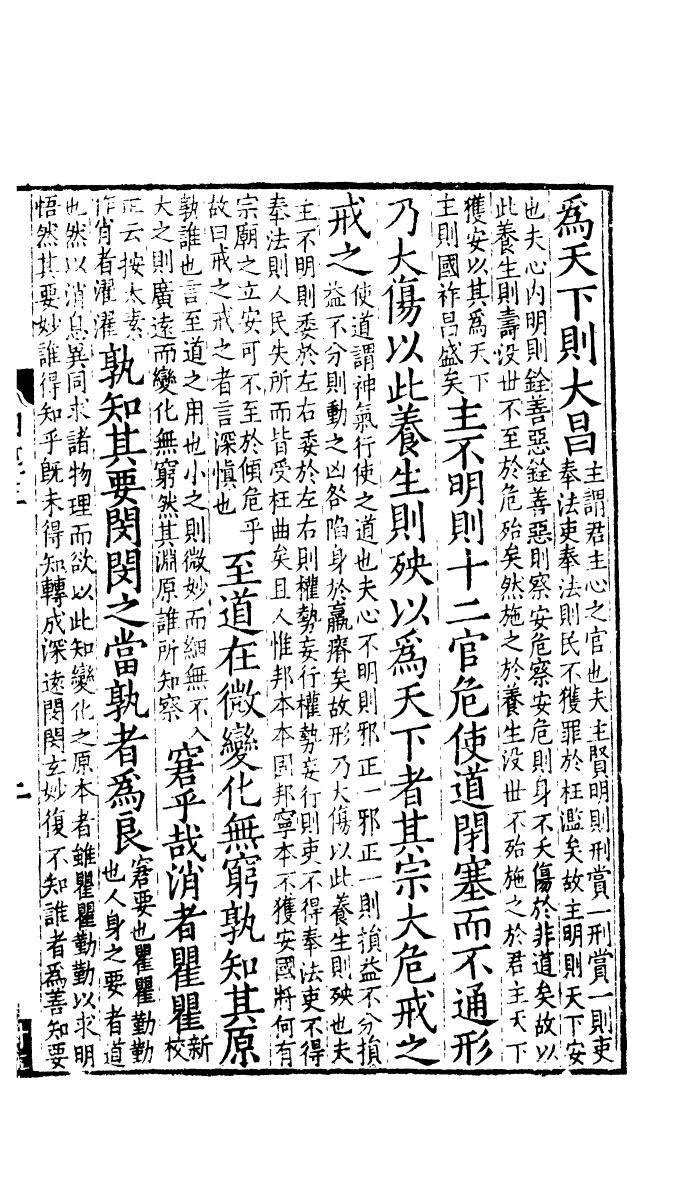 爲天下則大昌
主謂君主心之官也夫主賢明則刑賞一刑賞一則吏
奉法吏奉法則民不獲罪於枉濫矣故主明則天下安
也夫心内明則銓善惡銓善惡則察安危察安危則身不夭傷於非道矣故以
此養生則壽没世不至於危殆矣然施之於養生没世不殆施之於君主天下
獲安以其爲天下
主則國祚昌盛矣
主不明則十二官危使道閉塞而不通形
乃大傷以此養生則殃以爲天下者其宗大危戒之
戒之
使道謂神氣行使之道也夫心不明則邪正一邪正一則損益不分損
益不分則動之凶咎陷身於羸瘠矣故形乃大傷以此養生則殃也夫
主不明則委於左右委於左右則權勢妄行權勢妄行則吏不得奉法吏不得
奉法則人民失所而皆受枉曲矣且人惟邦本本固邦寧本不獲安國將何有
宗廟之立安可不至於傾危乎
故曰戒之戒之者言深慎也
至道在微變化無窮孰知其原
孰誰也言至道之用也小之則微妙而細無不入
大之則廣遠而變化無窮然其淵原誰所知察
窘乎哉消者瞿瞿
新
校
正云按太素
作肖者濯濯
孰知其要閔閔之當孰者爲良
窘要也瞿瞿勤勤
也人身之要者道
也然以消息異同求諸物理而欲以此知變化之原本者雖瞿瞿勤勤以求明
悟然其要妙誰得知乎既未得知轉成深遠閔閔玄妙復不知誰者爲善知要